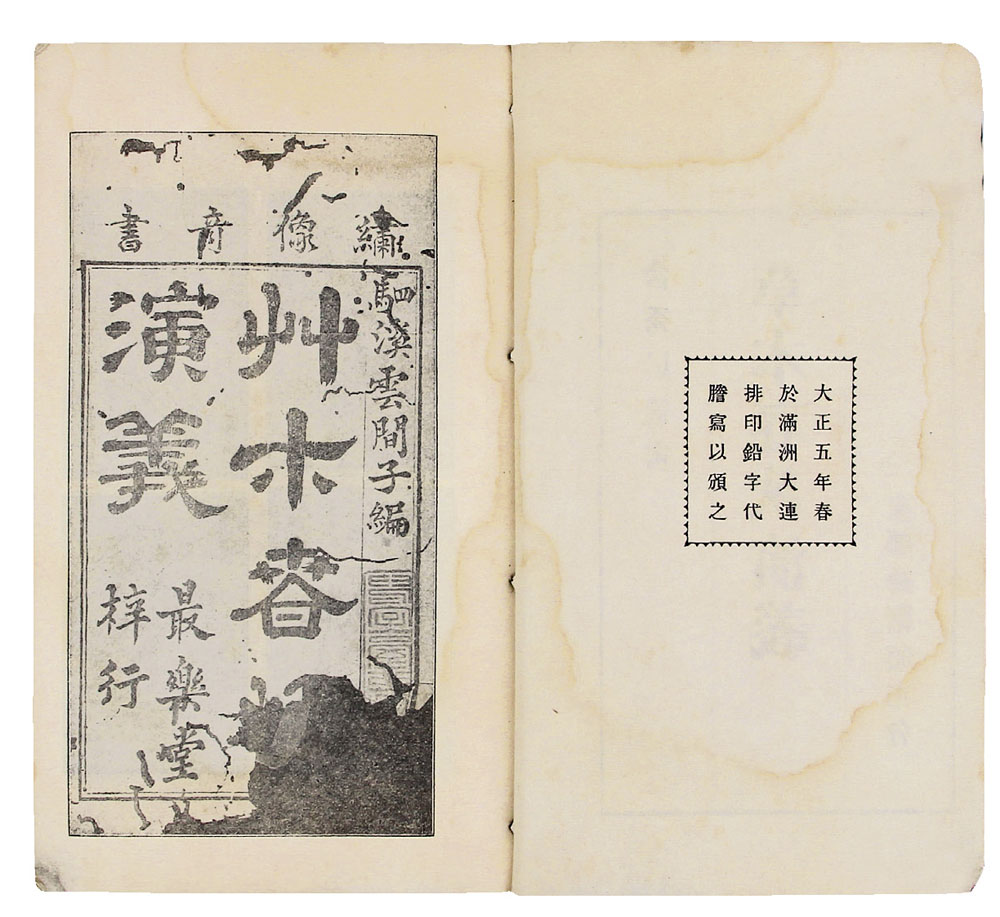 大正五年春
於滿洲大連
排印鉛字代
謄寫以頒之
繡像奇書
駟溪雲間子編
艸木春
演義
最樂堂
梓行